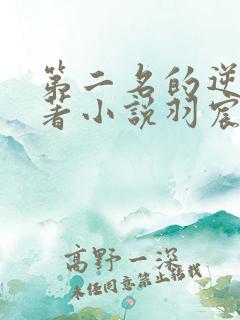 第二名的逆
著小説羽宸
高野一深
未经同意禁止转载